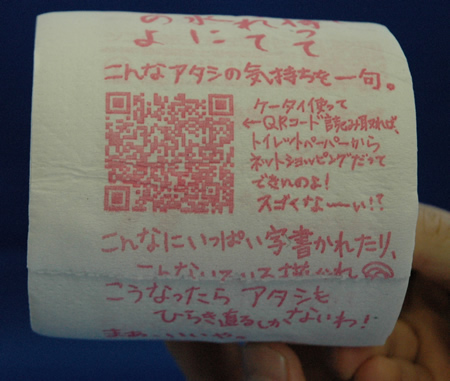 よにてて
こんなアタシの気持ちを一句。
ケータイ使って
←QRコード読み取れば、
トイレットペーパーから
ネットショッピングだって
できんのよ!
スゴくな〜い!?
こんなにいっぱい字書かれたり、
こうなったら アタシも
ひらき直るしかないわ!